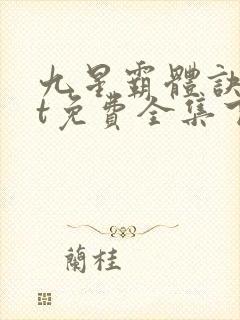 九星霸體訣
t免費全集
蘭桂